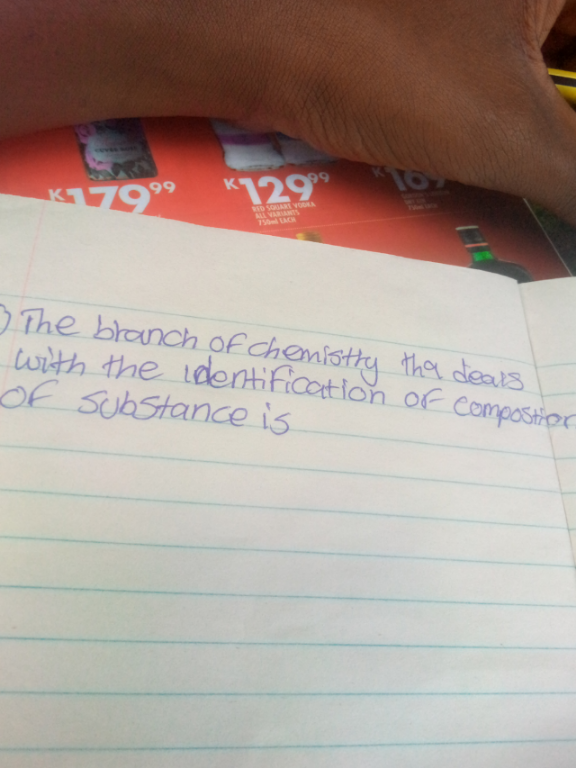 K179⁹⁹
K129⁹⁹
RED SQUARE VODKA
ALL VARIANTS
750ml EACH
K169
) The branch of chemistry tha deals
with the identification of compostion
of substance is